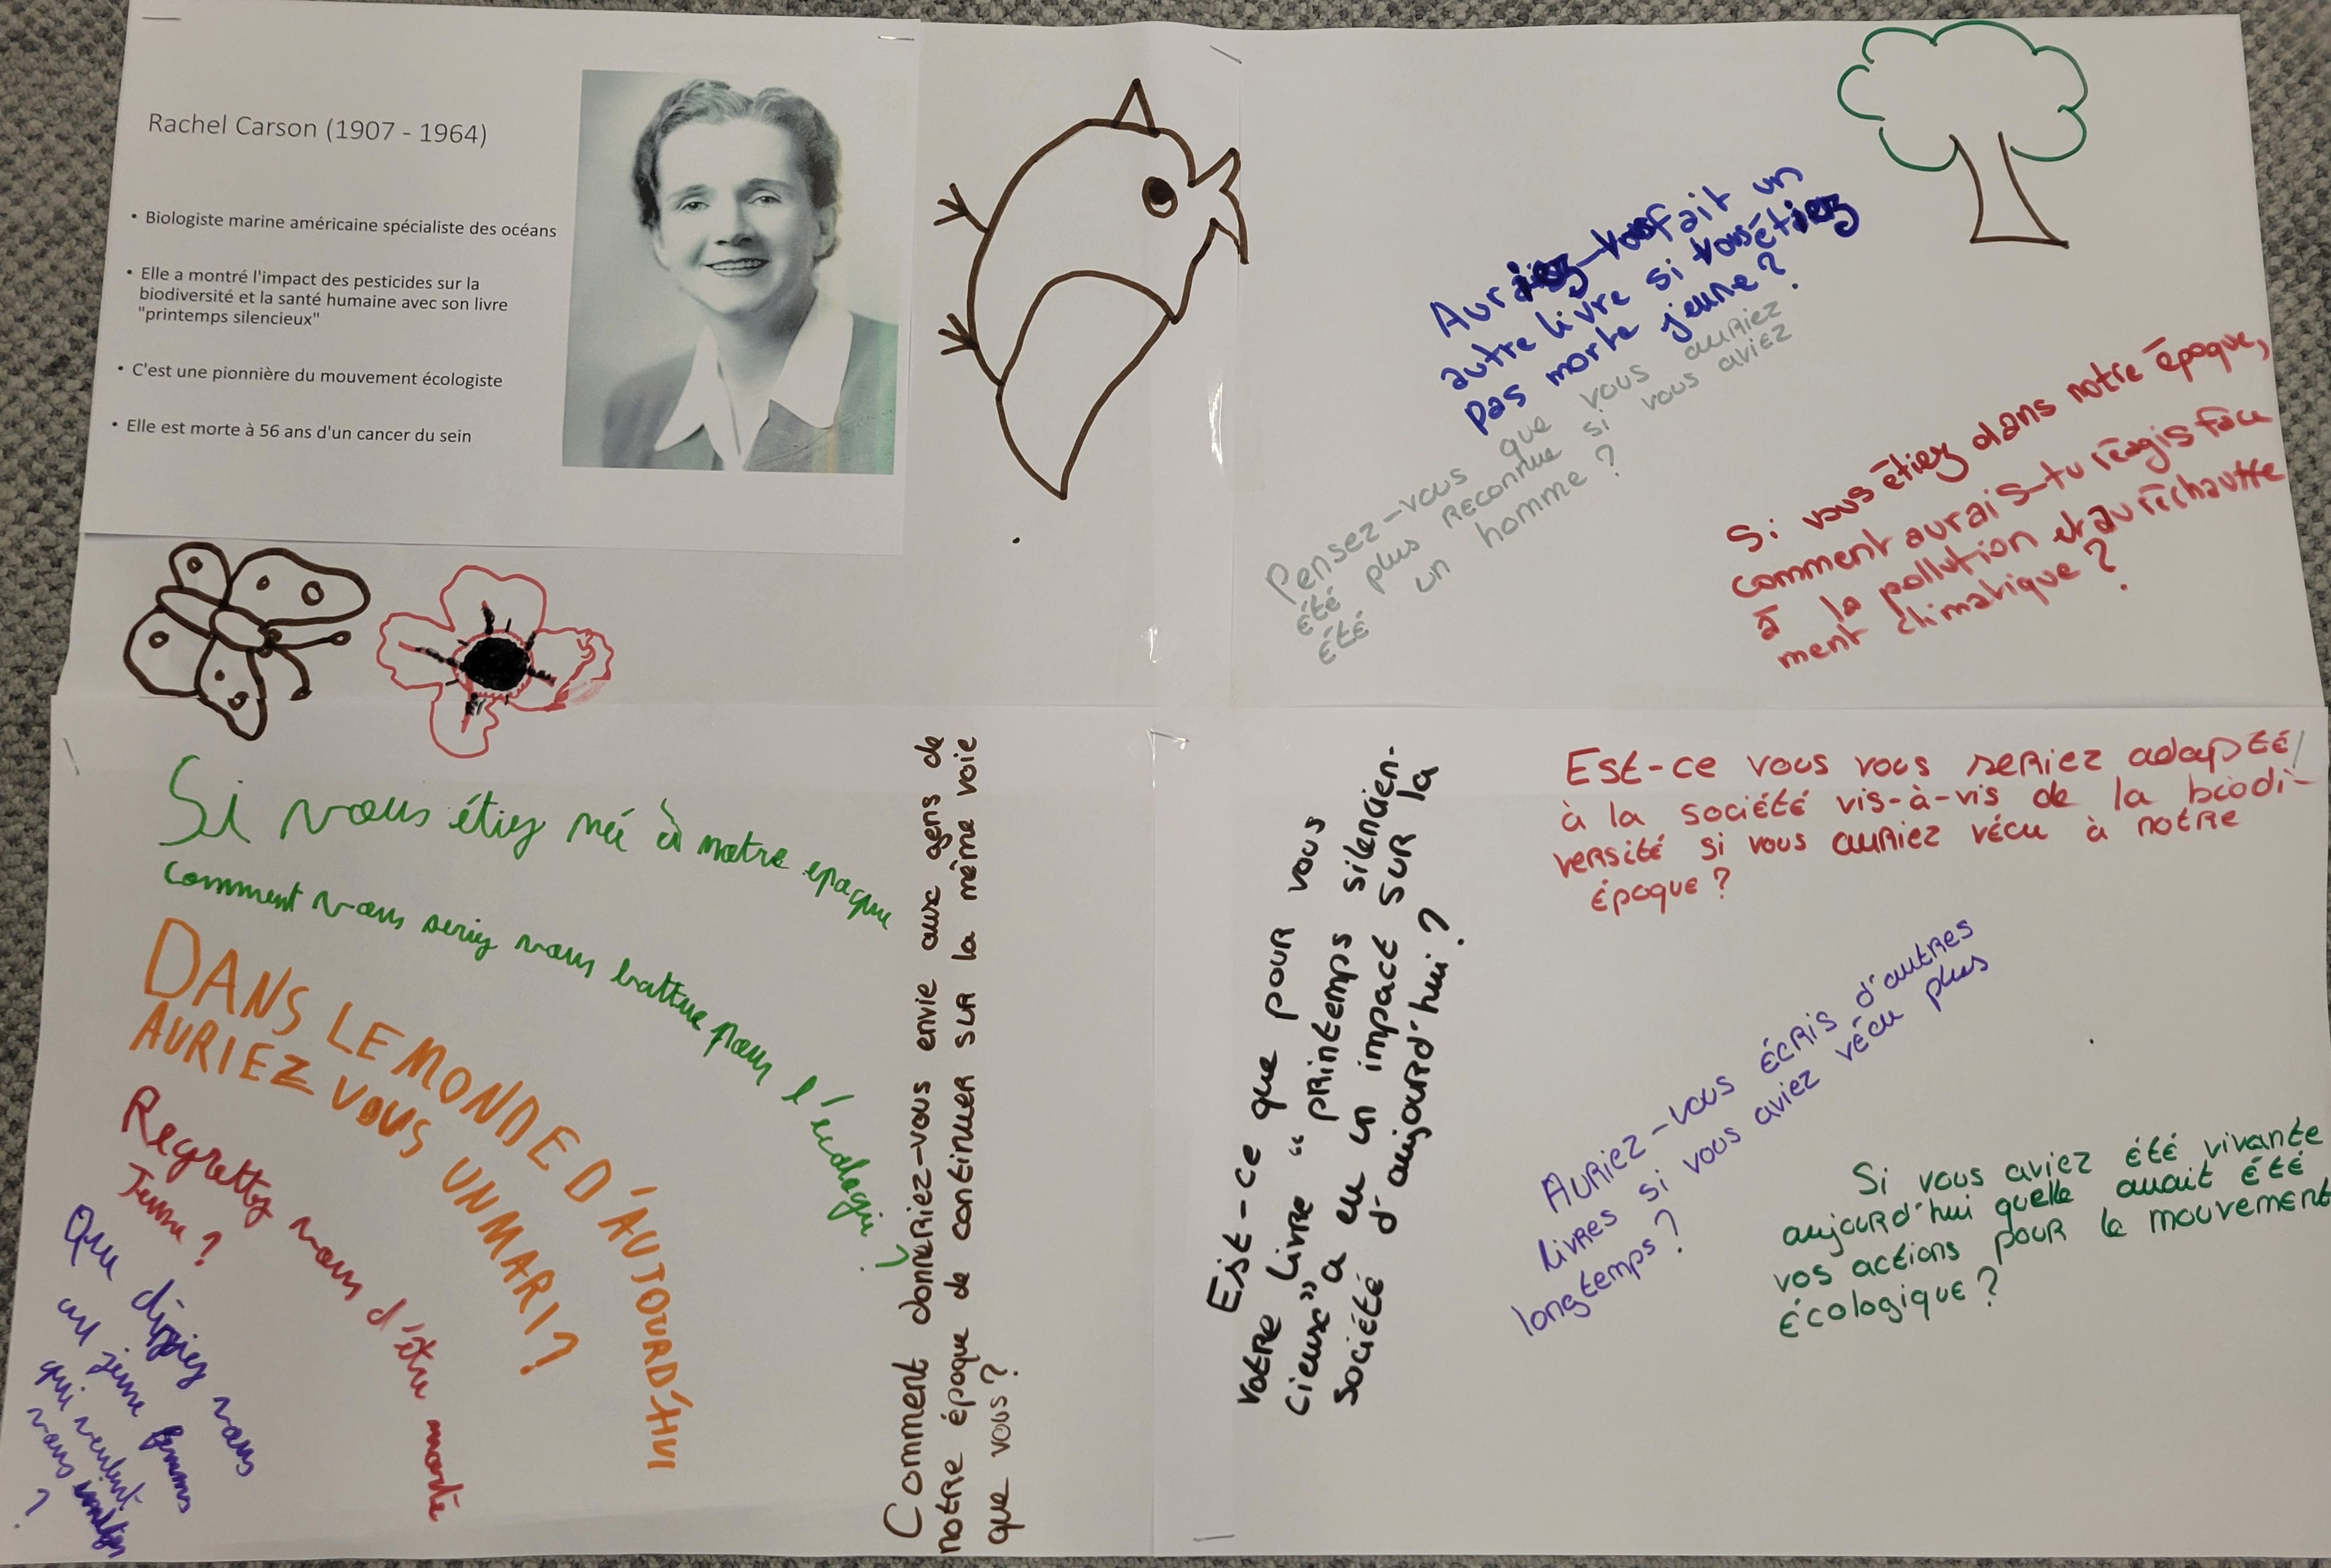 Rachel Carson (1907 - 1964)
• Biologiste marine américaine spécialiste des océans
• Elle a montré l'impact des pesticides sur la
biodiversité et la santé humaine avec son livre
"printemps silencieux"
• C'est une pionnière du mouvement écologiste
• Elle est morte à 56 ans d'un cancer du sein
Auriez-vous fait un
autre livre si vous étiez
pas morte jeune ?
Pensez-vous que vous auriez
été plus reconnue si vous aviez
été un homme ?
Si vous étiez dans notre époque,
comment aurais-tu réagis face
à la pollution et au réchauffe
ment climatique ?
Si vous étiez né à notre epoque
comment vous seriez vous battue pour l'écologie
?
DANS LE MONDE D'AUJOURD'HUI
AURIEZ VOUS UN MARI ?
Regrettez vous d'être morte
Jeune ?
Que diriez vous
au jeune femmes
qui veulent
vous imiter
?
Comment donneriez-vous envie aux gens de
notre époque de continuer sur la même voie
que vous ?
Est-ce que pour vous
votre livre "printemps silencien-
cieux" a eu un impact sur la
société d'aujourd'hui ?
Est-ce vous vous seriez adapté
à la société vis-à-vis de la biodi-
versité si vous auriez vécu à notre
époque ?
Auriez-vous écris d'autres
livres si vous aviez vécu plus
longtemps ?
Si vous aviez été vivante
aujourd'hui quelle aurait été
vos actions pour le mouvement
écologique ?